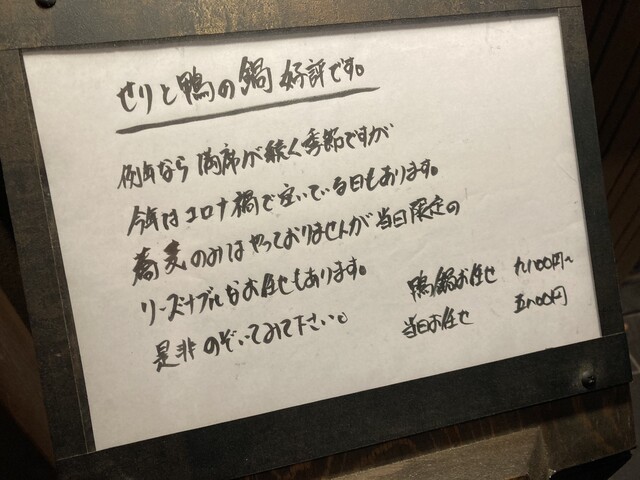 せりと鴨の鍋 好評です。
例年なら満席が続く季節ですが
今年はコロナ禍で空いている日もあります。
蕎麦のみはやっておりませんが当日限定の
リーズナブルなお任せもあります。
是非のぞいてみて下さい。
鴨鍋お任せ 九、一00円~
当日お任せ 五、一00円